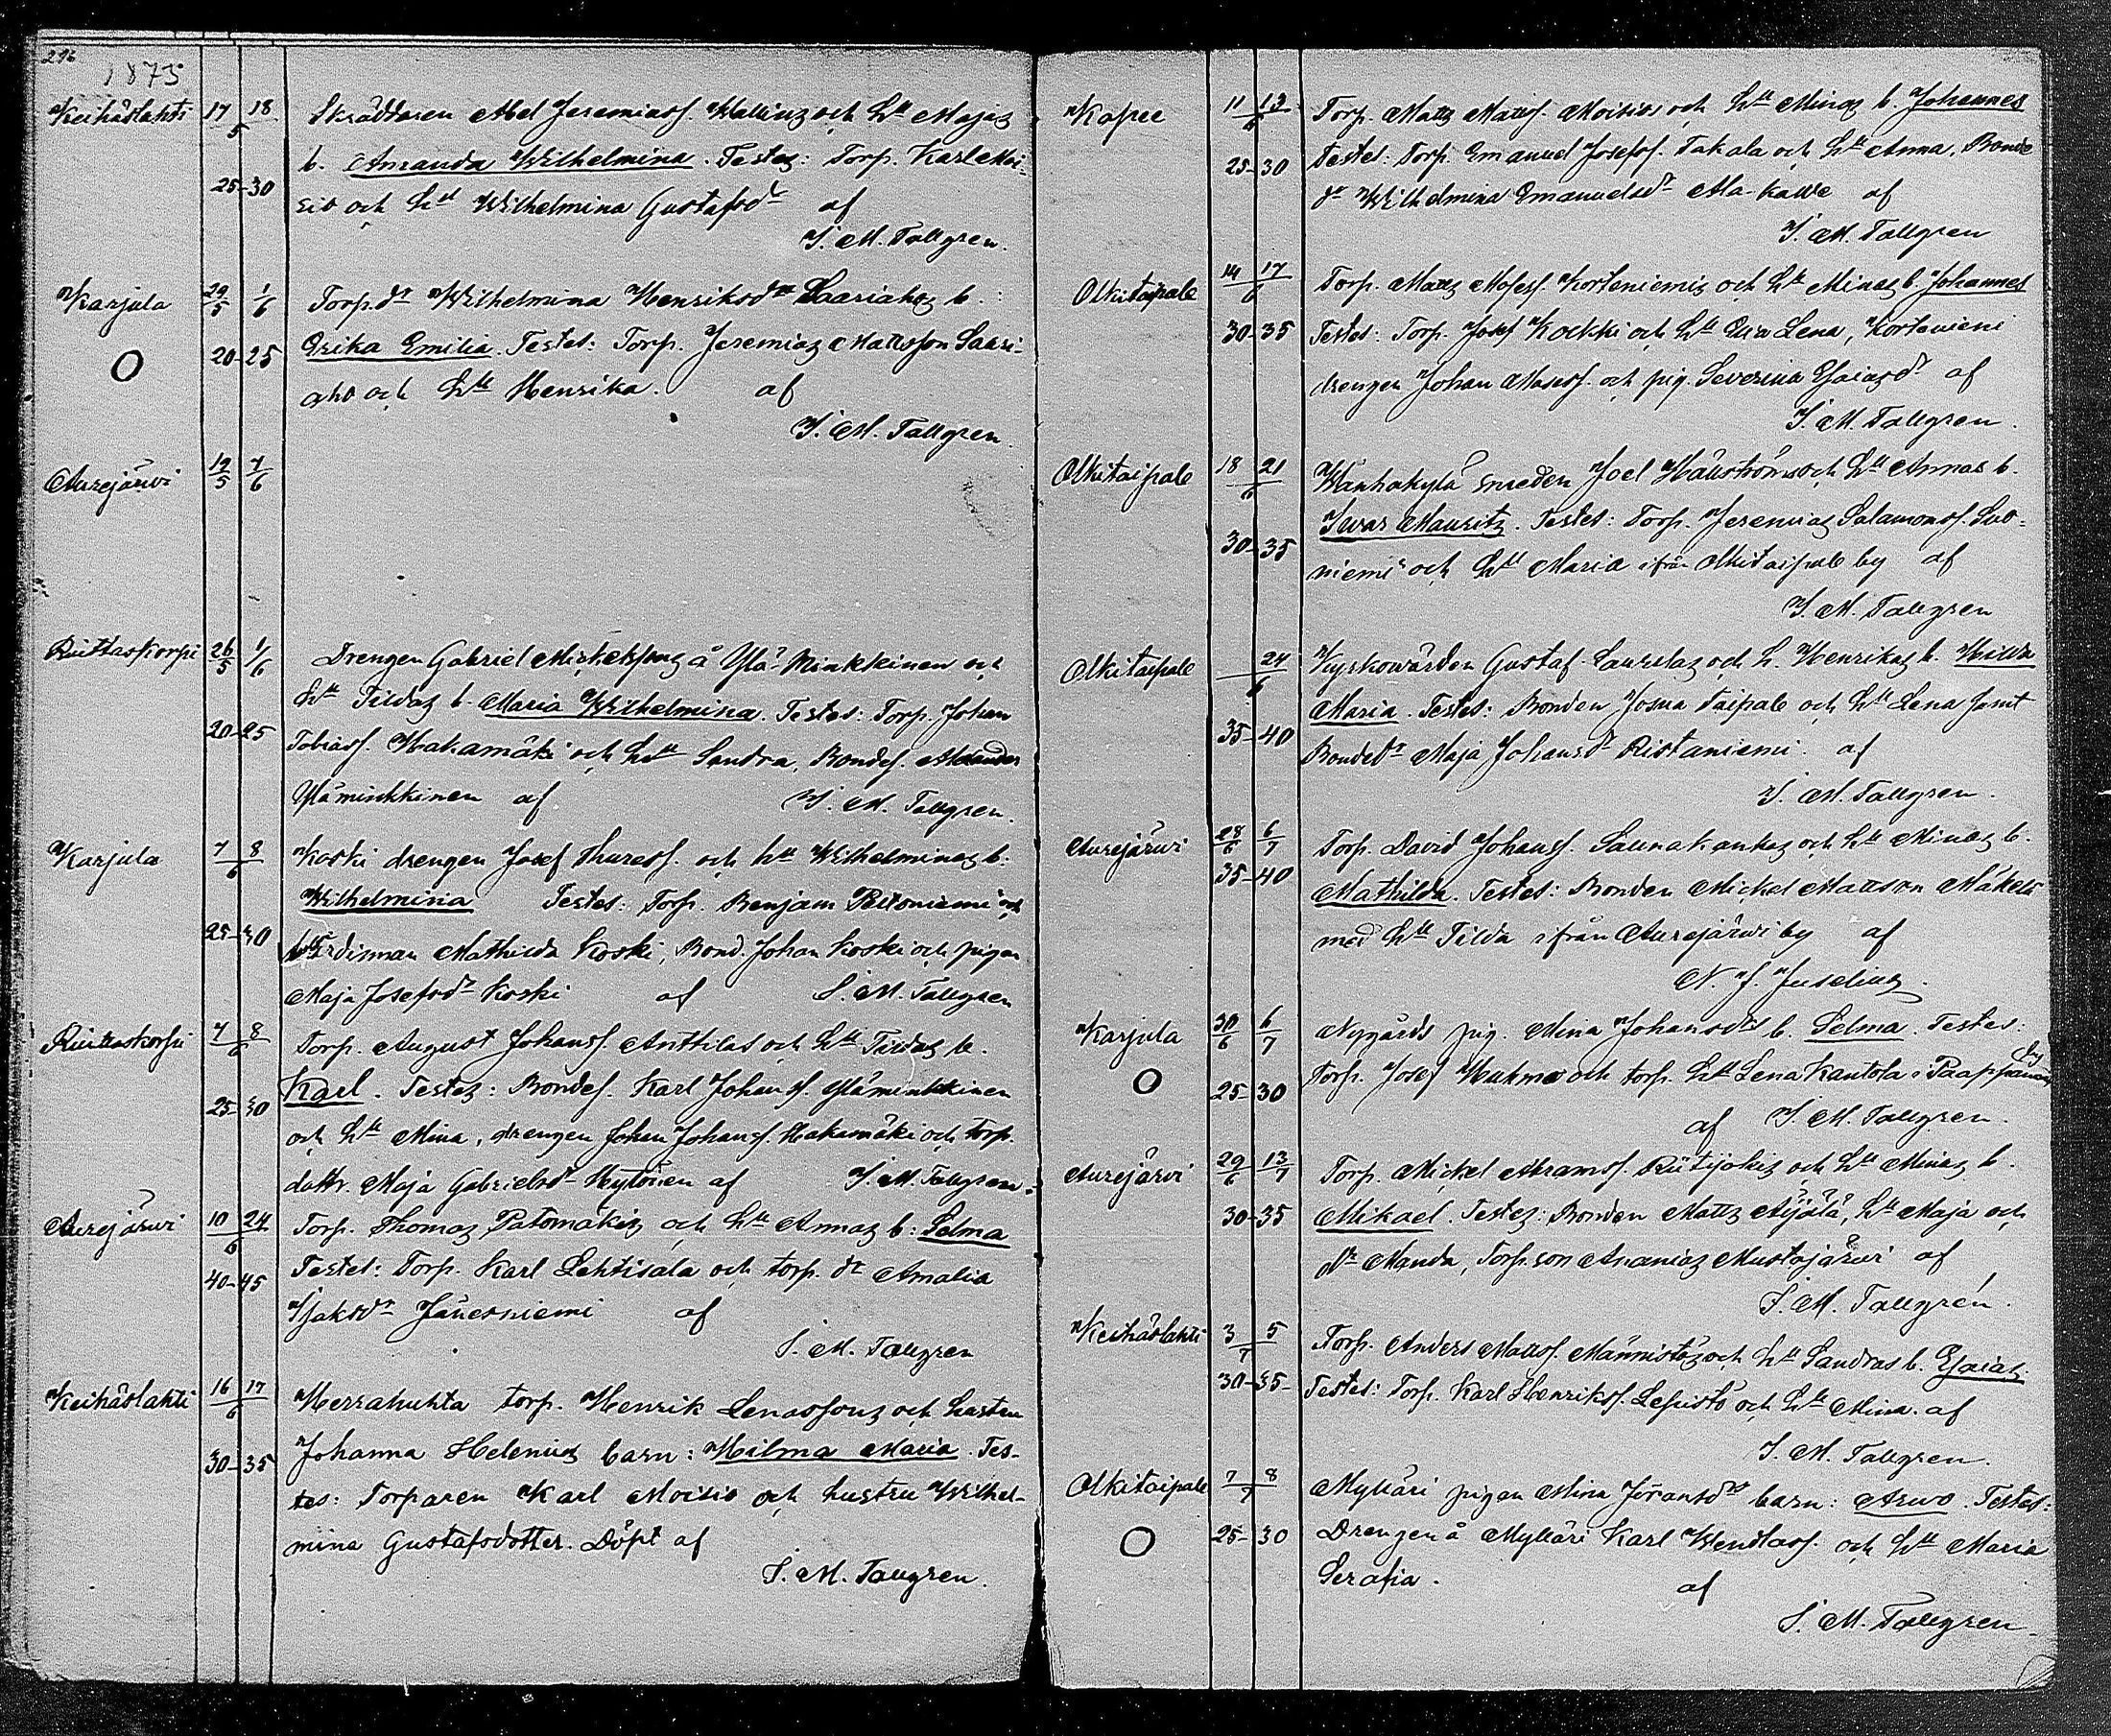 296
1875
Keihäslahti 17 18
5
Skräddaren Abel Jeremiass. Wallinz och h:u Majas
b. Amanda Wilhelmina. Testes: Torp. Karl Moi-
25-30
sio och h:u Wilhelmina Gustafsd:r af
J. M. Tallgren.
Karjula 29/5 1/6
Torp.d:r Wilhelmina Henriksd:rs Saariahoz b.:
O 20-25
Erika Emilia. Testes: Torp. Jeremiaz Mattsson Saari-
aho och h:u Henrika. af
J. M. Tallgren.
Aurejärvi 12/5 7/6
Riuttaskorpi 26/5 1/6
Drengen Gabriel Michelssons å Ylä-Minkkinen och
h:u Tildaz b. Maria Wilhelmina. Testes: Torp. Johan
20-25
Tobiass. Hakamäki och h:u Sandra, Bondes. Alexander
Yläminkkinen af J. M. Tallgren.
Karjula 7 8
6
Koski drengen Josef Thuress. och h:u Wilhelminas b.
Wilhelmina Testes: Torp. Benjam Peltoniemi och
25-30
Mathilda Koski, Bond. Johan Koski och pigan
Maja Josefsd:r Koski af J. M. Tallgren
Riuttaskorpi 7 8
6
Torp. August Johanss. Anttilas och h:u Tildaz b.
Karl. Testes: Bondes. Karl Johanss. Yläminkkinen
25-30
och h:u Mina, drengen Johan Johanss. Hakamäki och torp.
dottr. Maja Gabrielsd:r Hytönen af J. M. Tallgren.
Aurejärwi 10 24
6
Torp. Thomas Patomäkiz och h:u Annas b: Selma
Testes: Torp. Karl Lehtisala och torp. d:r Amalia
40-45
Isaksd:r Jänesniemi af
J. M. Tallgren
Keihäslahti 16 17
6
Herrahuhta torp. Henrik Lenassons och hustru
Johanna Helenius barn: Hilma Maria. Tes-
30-35
tes: Torparen Karl Moisio och hustru Wilhel-
mina Gustafsdotter. Döpt af
J. M. Tallgren.
Kapee 11 13
6
Torp. Matts Matts. Moisios och h:u Minas b. Johannes
25-30
Testes: Torp. Emanuel Josefss. Takala och h:u Anna, Bonde
d:r Wilhelmina Emanuelsd:r Ala-kawe af
J. M. Tallgren
Olkitaipale 14 17
6
Torp. Matts Mosess. Korteniemis och h:u Minas b. Johannes
30-35
Testes: Torp. Josef Kockki och h:u Eva Lena, Korteniemi
drengen Johan Mosess. och pig. Severina Esaiasd:r af
J. M. Tallgren.
Olkitaipale 18 21
6
Wanhakylä smeden Joel Hällströms och h:u Annas b.
Iwar Mauritz. Testes: Torp. Jeremias Salamonss. Suo-
30-35
niemi och h:u Maria ifrån Olkitaipale by af
J. M. Tallgren
Olkitaipale 24
6
Kyrkowärden Gustaf Laurilaz och h. Henrikas b. Hilda
Maria. Testes: Bonden Josua Taipale och h:u Lena samt
35-40
Bonded:r Maja Johansd:r Ristaniemi. af
J. M. Tallgren.
Aurejärwi 28/6 6/7
Torp. David Johanss. Saunakankaz och h:u Minas b.
35-40
Mathilda. Testes: Bonden Michel Mattsson Mäkelä
med h:u Tilda ifrån Aurejärwi by af
N. J. Juselius.
Karjula 30/6 6/7
Nygårds pig. Mina Johansd:rs b. Selma. Testes:
O 25-30
Torp. Josef Huhma och torp. h:u Lena Kantola i Paappanen by
af J. M. Tallgren.
Aurejärvi 29/6 13/7
Torp. Michel Abramss. Riitijokiz och h:u Minas b.
30-35
Mikael. Testes: Bonden Matts Äijälä, h:u Maja och
d:r Manda, Torp. son Ananias Mustajärwi af
J. M. Tallgren.
Keihäslahti 3 5
7
Torp. Anders Matts. Männistöz och h:u Sandras b. Esaias
30-35
Testes: Torp. Karl Henrikss. Lepistö och h:u Mina. af
J. M. Tallgren.
Olkitaipale 7 8
7
Mylläri pigan Mina Jöransd:rs barn: Arwo. Testes:
O 25-30
Drengen å Mylläri Karl Wendlass. och h:u Maria
Serafia. af
J. M. Tallgren.